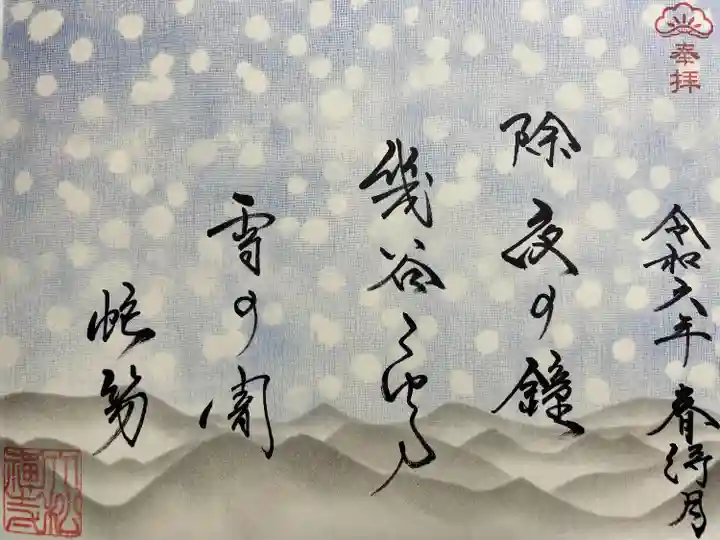 奉拝
令和六年 春待月
除夜の鐘
幾谷こゆる
雪の闇
蛇笏